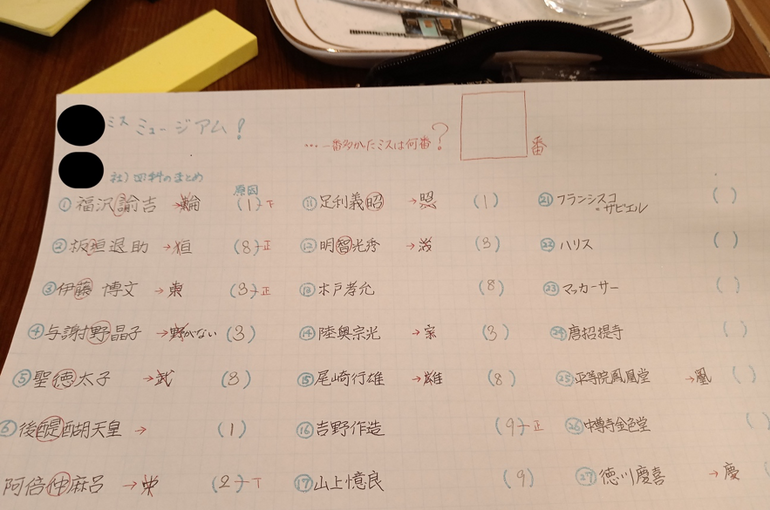 ミス ミュージアム!
… 一番多かったミスは何番? 番
社)四科のまとめ
原因
① 福沢諭吉 → 輪 (1) 下
② 板垣退助 → 恒 (8) 正
③ 伊藤 博文 → 東 (3) 正
④ 与謝野晶子 → 野がない (3)
⑤ 聖徳太子 → 武 (3)
⑥ 後醍醐天皇 → (1)
阿倍仲麻呂 → (2) 下
⑪ 足利義昭 → (1)
⑫ 明智光秀 → (3)
⑬ 木戸孝允 (8)
⑭ 陸奥宗光 → 宗 (3)
⑮ 尾崎行雄 → 雄 (8)
⑯ 吉野作造 (9) 正
⑰ 山上憶良 (9)
㉑ フランシスコ ( )
・ザビエル
㉒ ハリス ( )
㉓ マッカーサー ( )
㉔ 唐招提寺 ( )
㉕ 平等院鳳凰堂 → 凰 ( )
㉖ 中尊寺金色堂 ( )
㉗ 徳川慶喜 → 慶 ( )